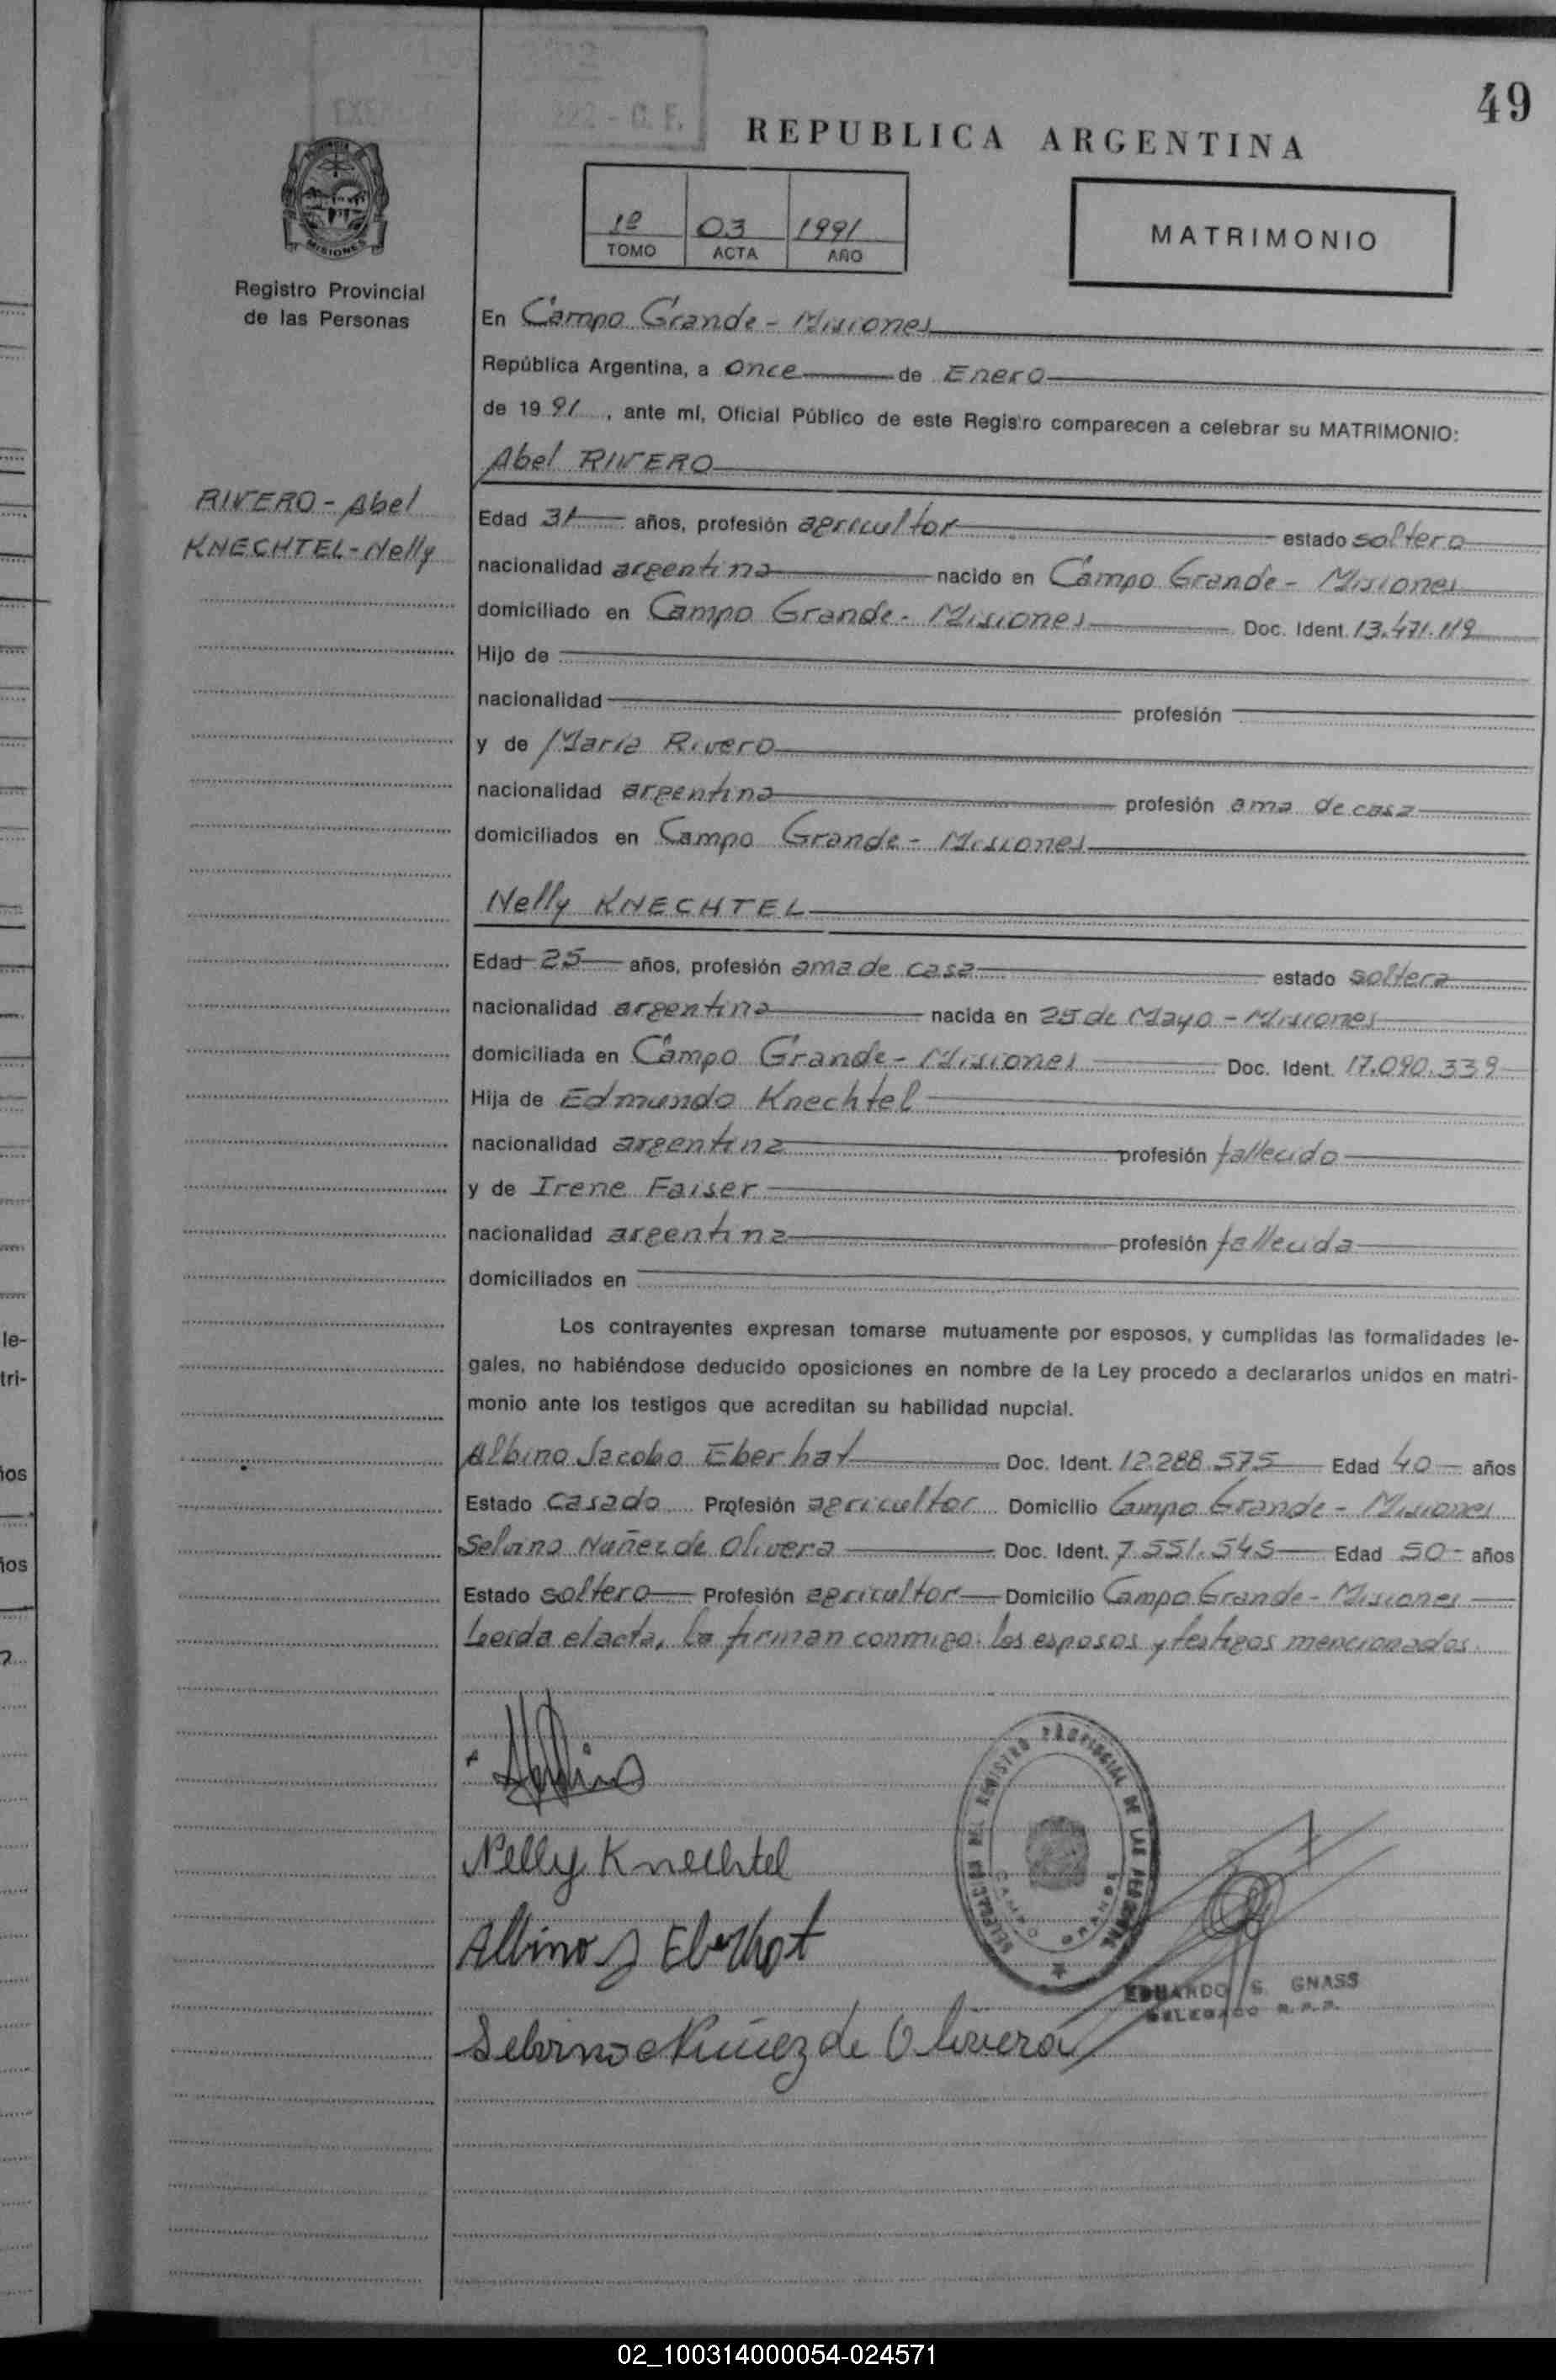 49
REPUBLICA ARGENTINA
1º 03 1991
TOMO ACTA AÑO
MATRIMONIO
MISIONES
Registro Provincial
de las Personas
En Campo Grande - Misiones
República Argentina, a once de Enero
de 1991, ante mí, Oficial Público de este Registro comparecen a celebrar su MATRIMONIO:
Abel RIVERO
RIVERO - Abel
KNECHTEL - Nelly
Edad 31 años, profesión agricultor estado soltero
nacionalidad argentina nacido en Campo Grande - Misiones
domiciliado en Campo Grande - Misiones Doc. Ident. 13.471.119
Hijo de
nacionalidad profesión
y de María Rivero
nacionalidad argentina profesión ama de casa
domiciliados en Campo Grande - Misiones
Nelly KNECHTEL
Edad 25 años, profesión ama de casa estado soltera
nacionalidad argentina nacida en 25 de Mayo - Misiones
domiciliada en Campo Grande - Misiones Doc. Ident. 17.090.339
Hija de Edmundo Knechtel
nacionalidad argentina profesión fallecido
y de Irene Faiser
nacionalidad argentina profesión fallecida
domiciliados en
Los contrayentes expresan tomarse mutuamente por esposos, y cumplidas las formalidades le-
gales, no habiéndose deducido oposiciones en nombre de la Ley procedo a declararlos unidos en matri-
monio ante los testigos que acreditan su habilidad nupcial.
Albino Jacobo Eberhat Doc. Ident. 12.288.575 Edad 40 años
Estado casado Profesión agricultor Domicilio Campo Grande - Misiones
Selvino Nuñez de Olivera Doc. Ident. 7.551.545 Edad 50 años
Estado soltero Profesión agricultor Domicilio Campo Grande - Misiones
Leída el acta, la firman conmigo los esposos y testigos mencionados.
Nelly Knechtel
Albino J Eberhat
DELEGACION DEL REGISTRO PROVINCIAL DE LAS PERSONAS
CAMPO GRANDE
EDUARDO S. GNASS
DELEGADO R.P.P.
Selvino Nuñez de Olivera
02_100314000054-024571